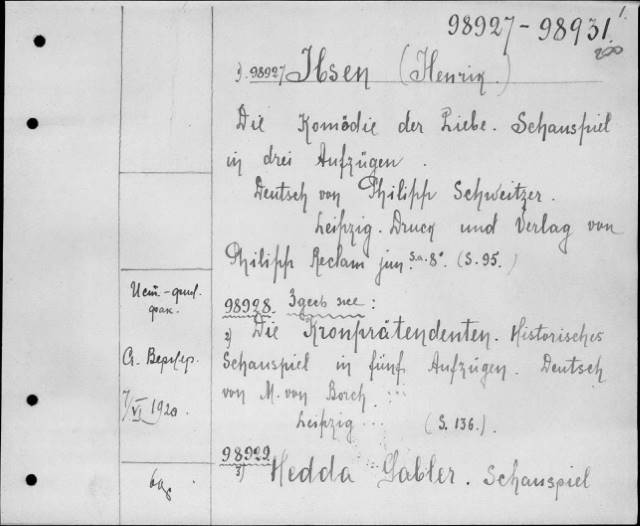 1.
98927-98931.
200
1). 98927 Ibsen (Henrik.)
Die Komödie der Liebe. Schauspiel
in drei Aufzügen.
Deutsch von Philipp Schweitzer.
Leipzig. Druck und Verlag von
Philipp Reclam jun. s.a. 8°. (S. 95.)
Ист-фил.
фак.
98928. Здесь же:
2) Die Kronprätendenten. Historisches
Schauspiel in fünf Aufzügen. Deutsch
von M. von Borch. ...
Leipzig ... (S. 136.).
7/VI 1920.
98929
3) Hedda Gabler. Schauspiel